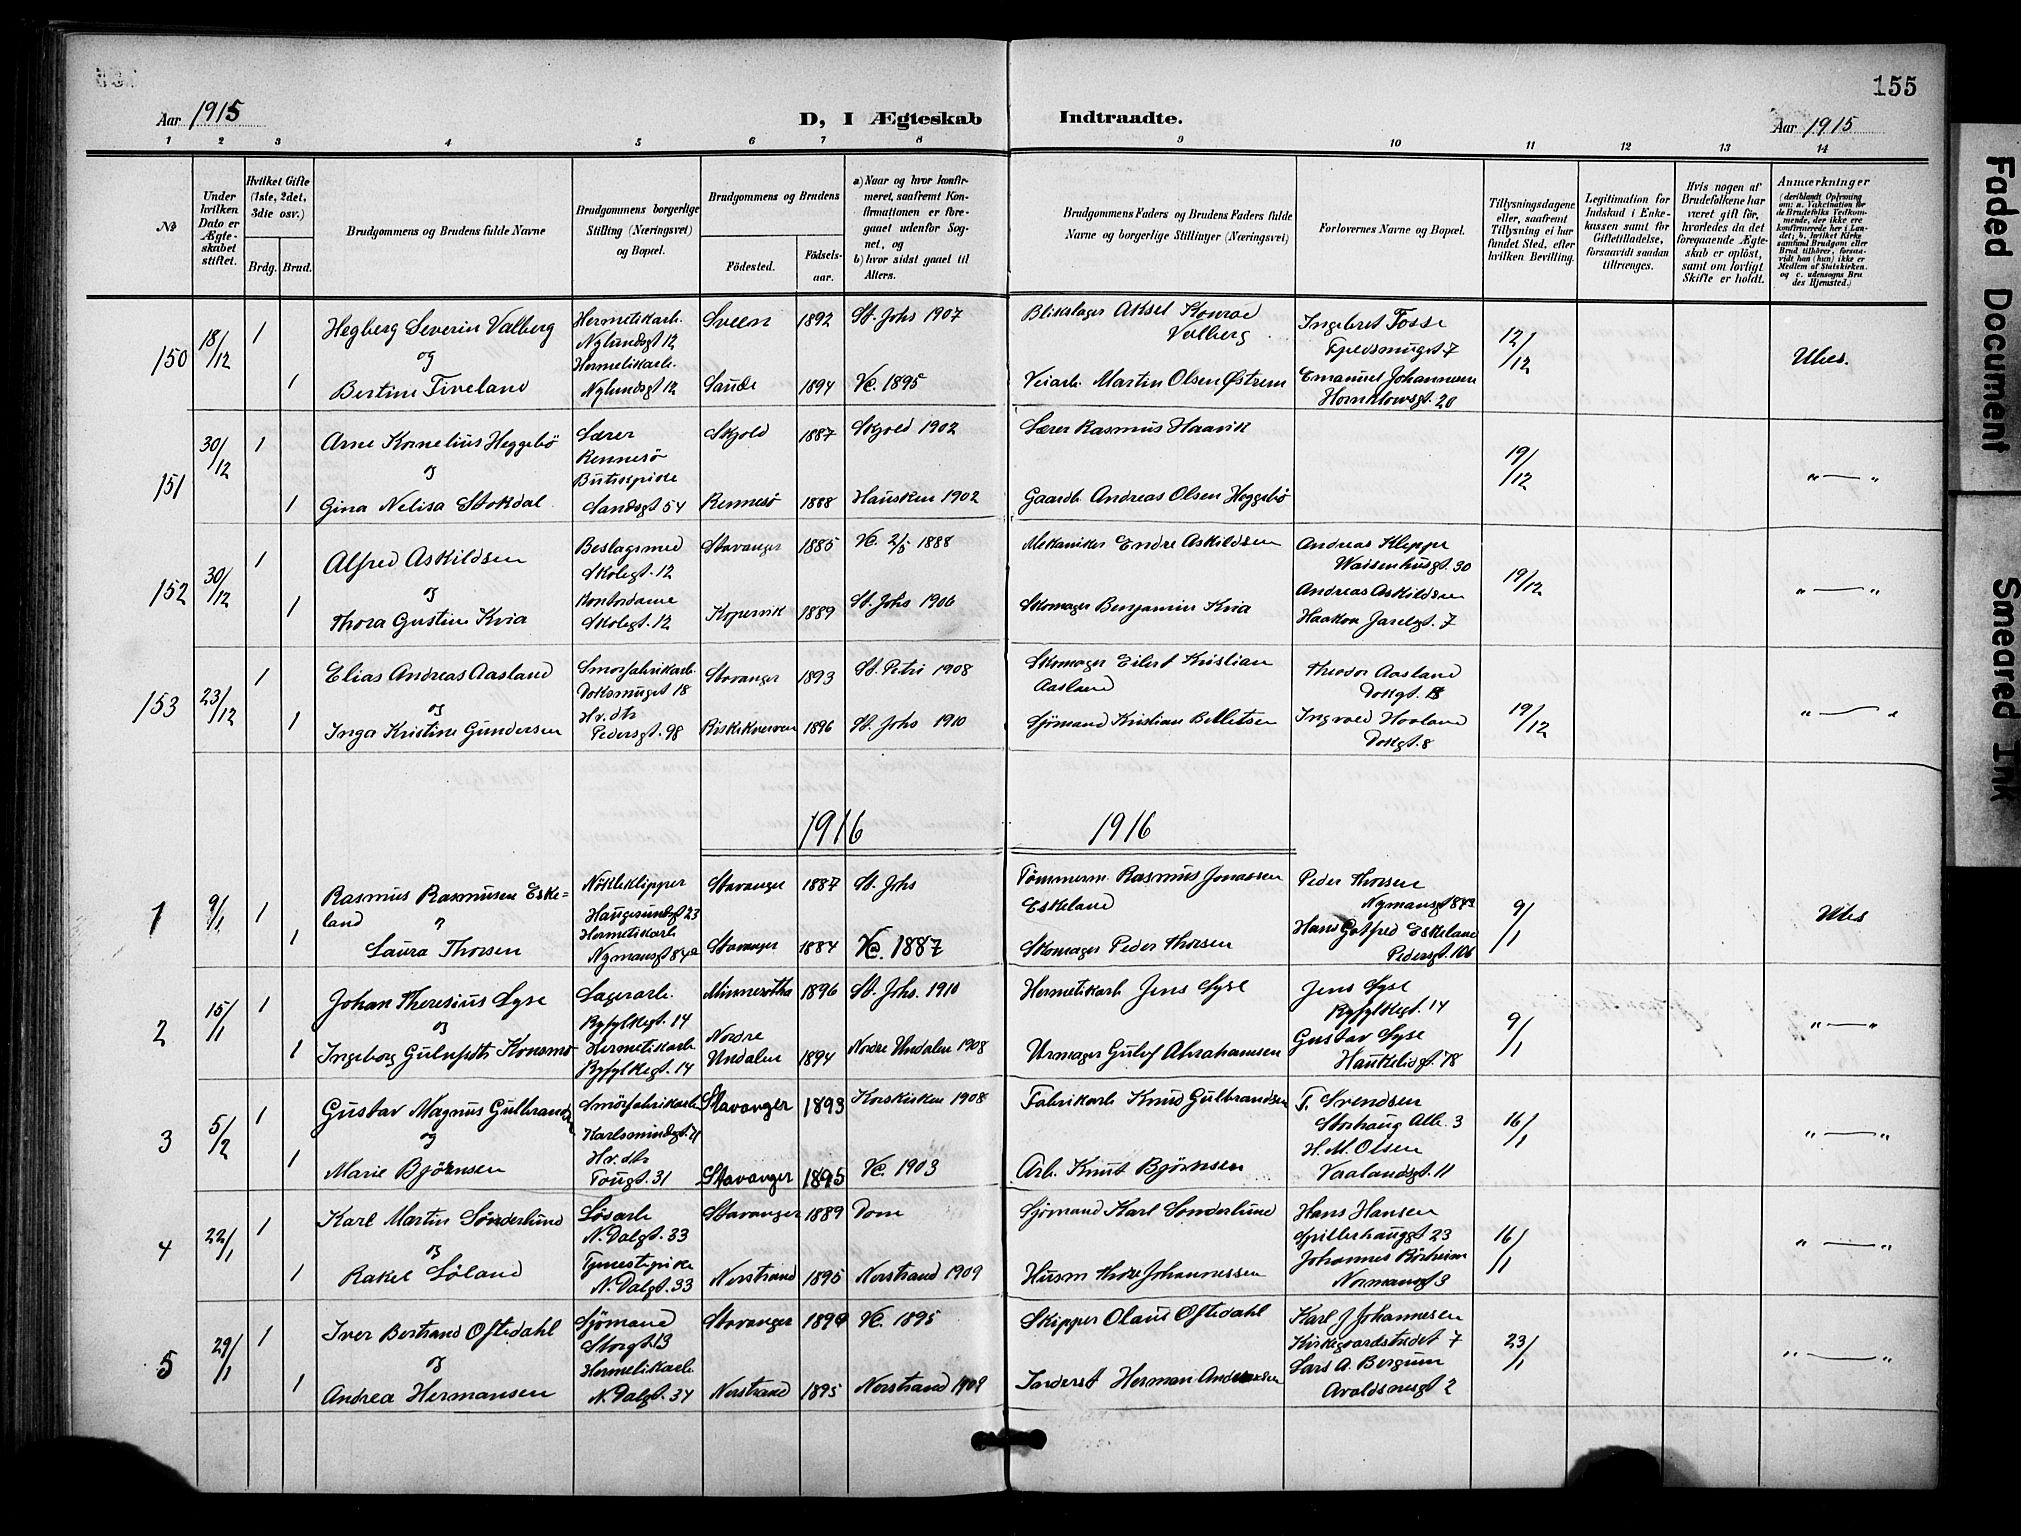 155
Aar 1915
D, I Ægteskab Indtraadte.
Aar 1915
1 2 3 4 5 6 7 8 9 10 11 12 13 14
№
Under hvilken Dato er Ægteskabet stiftet.
Hvilket Gifte (1ste, 2det, 3die osv.)
Brdg. Brud.
Brudgommens og Brudens fulde Navne
Brudgommens borgerlige Stilling (Næringsvei) og Bopæl.
Brudgommens og Brudens
Födested.
Födselsaar.
a) Naar og hvor konfirmeret, saafremt Konfirmationen er foregaaet udenfor Sognet, og
b) hvor sidst gaaet til Alters.
Brudgommens Faders og Brudens Faders fulde Navne og borgerlige Stillinger (Næringsvei)
Forlovernes Navne og Bopæl.
Tillysningsdagene eller, saafremt Tillysning ei har fundet Sted, efter hvilken Bevilling.
Legitimation for Indskud i Enkekassen samt for Giftetilladelse, forsaavidt saadan tiltrænges.
Hvis nogen af Brudefolkene har været gift för, hvorledes da det foregaaende Ægteskab er oplöst, samt om lovligt Skifte er holdt.
Anmærkninger
(deriblandt Oplysning om: a. Vakcination for de Brudefolks Vedkommende, der ikke ere konfirmerede her i Landet; b. hvilket Kirkesamfund Brudgom eller Brud tilhører, forsaavidt han (hun) ikke er Medlem af Statskirken. og c. udensogns Brudes Hjemsted.)
150 18/12 1 Hegberg Severin Valberg Hermetikarb. Nylundsgt 12 Sveen 1892 St. Johs 1907 Blikslager Aksel Konrad Valberg Ingebret Fosse 12/12 Ubes.
og
1 Bertine Tiveland Hermetikarb. Nylundsgt 12 Saude 1894 Vc. 1895 Veiarb. Martin Olsen Østrem Emanuel Johannesen 20
151 30/12 1 Arne Kornelius Heggebö Lærer Rennesö Skjold 1887 Skjold 1902 Lærer Rasmus Haavik 19/12 " — "
og
1 Gina Nelisa Stokdal Butikpike Sandsgt 54 Rennesö 1888 Hausken 1902 Gaardb. Andreas Olsen Heggebö
152 30/12 1 Alfred Askildsen Beslagsmed Skolegt. 12 Stavanger 1885 Vc. 2/5 1888 Mekaniker Endre Askildsen Andreas Kleppe Waisenhusgt. 30 19/12 " — "
og
1 Thora Gustine Kvia Kontordame Skolegt. 12 Kopervik 1889 St. Johs 1906 Skomager Benjamin Kvia Andreas Askildsen Haakon Jarelgt. 7
153 23/12 1 Elias Andreas Aasland Smørfabrikarb. 18 Stavanger 1893 St. Petri 1908 Skomager Eilert Kristian Aasland Theodor Aasland Dokgt. 19/12 " — "
og
1 Inga Kristine Gundersen Hr. dtr Pedersgt. 98 1896 St. Johs 1910 Sjömand Kristian Ingvald Hovland Dokgt. 8
1916 1916
1 9/1 1 Rasmus Rasmusen Eskeland Haugesundsgt 23 Stavanger 1887 St. Johs Tømmerm. Rasmus Jonassen Eskeland Peder Thorsen 9/1 Ubes
"
1 Laura Thorsen Hermetikarb Nymansgt 84 Stavanger 1884 Vc. 1887 Skomager Peder Thorsen Hans Gotfred Eskeland Pedersgt. 106
2 15/1 1 Johan Theresius Syse Lagerarb. Ryfylkegt. 14 Minnesotha 1896 St. Johs. 1910 Hermetikarb Jens Syse Jens Syse Ryfylkegt. 14 9/1 " — "
og
1 Ingeborg Konsmo Hermetikarb Ryfylkegt. 14 Nordre Undalen 1894 Nordre Undalen 1908 Urmager Abrahamsen Gustav Syse Haukeligt. 78
3 5/2 1 Gustav Magnus Gulbrandsen Smörfabrikarb Karlsmindegt. Stavanger 1893 Korskirken 1908 Fabrikarb Knud Gulbrandsen T. Svendsen Storhaug Alle. 3 16/1 " — "
og
1 Marie Björnsen Hr. dtr Tougt. 31 Stavanger 1895 Vc. 1903 Arb. Knut Björnsen H. M. Olsen Vaalandsgt. 11
4 22/1 1 Karl Martin Sönderlund Lösarb N. Dalgt. 33 Stavanger 1889 Dom Sjömand Karl Sonderlund Hans Hansen Spillerhauggt 23 16/1 " — "
og
1 Rakel Söland Tjenestepike N. Dalgt. 33 Nerstrand 1895 Nerstrand 1909 Husm Thore Johannessen Johannes Normansgt 3
5 29/1 1 Iver Bertrand Oftedahl Sjömand Storgt. 13 Stavanger Vc. 1895 Skipper Olaus Oftedahl Karl J Johannesen Kirkegaardstrædet 7 23/1 " — "
og
1 Andrea Hermansen Hermetikarb N. Dalgt. 34 Nerstrand 1895 Nerstrand 1909 Inderst Herman Lars A. Bergum Avaldsnesgt 2
Faded Document
Smeared Ink